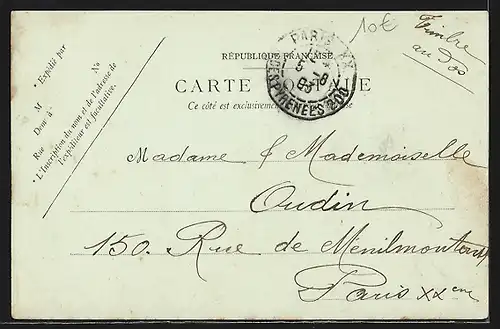 10€ Timbre
au dos
RÉPUBLIQUE FRANÇAISE
CARTE POSTALE
Ce côté est exclusivement
PARIS XX
5 1
03
R. DES PYRÉNÉES 200
• Expédié par
M
N°
Dem' à
Rue
• L'Inscription du nom et de l'adresse de
l'expéditeur est facultative.
Madame & Mademoiselle
Oudin
150. Rue de Ménilmontant
Paris XXeme